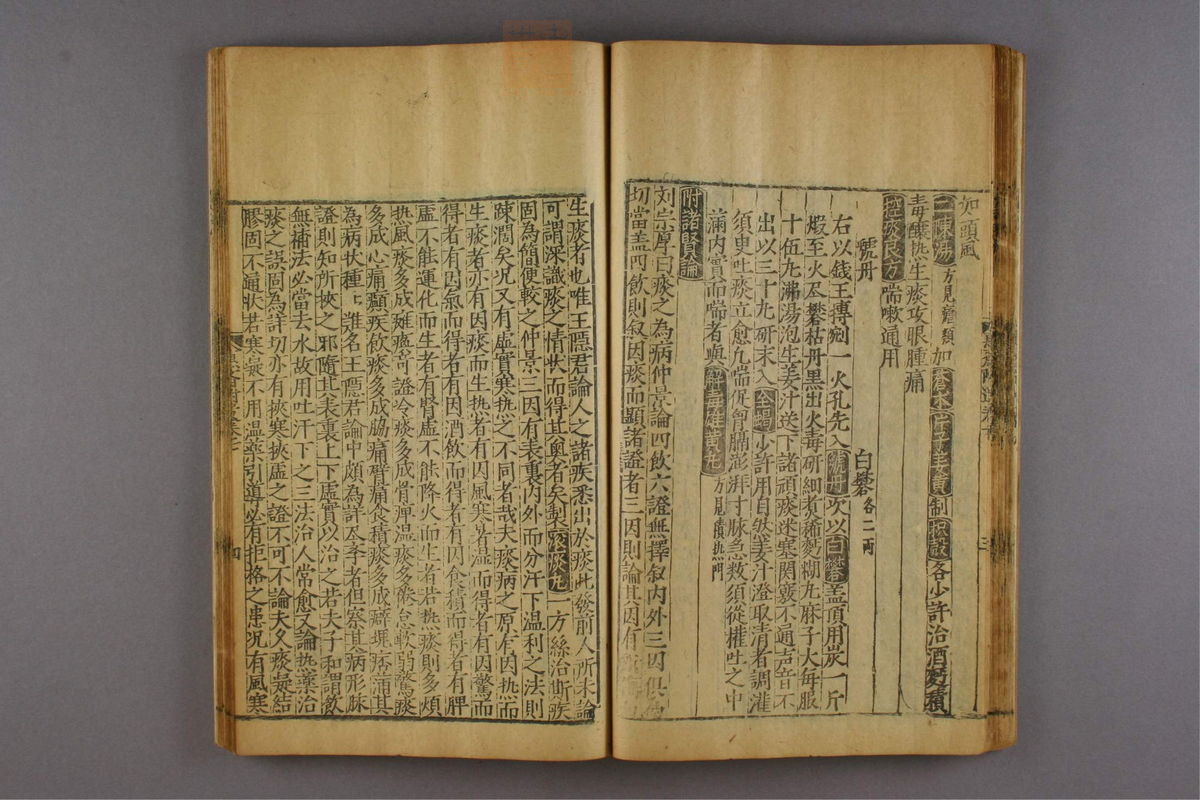 如頭風
二陳湯 方見痰類 加 蒼朮 片子姜黃 制 枳殼 各少許治酒麪積
毒釀热生痰攻眼腫痛
控痰良方 喘嗽通用
虢丹 白礬各二両
右以錢王摶剜一火孔先入 虢丹 次以 白礬 盖頂用炭一斤
煅至火尽礬枯丹黑出火毒研細煮稀麪糊丸麻子大每服
十伍丸沸湯泡生姜汁送下諸頑痰迷塞関竅不通声音不
出以三十丸研末入 全蝎 少許用自然姜汁澄取清者調灌
須臾吐痰立愈凡喘促曾膈澎湃寸脉急数須從權吐之中
滿内實而喘者與 解毒雄黃丸 方見積热門
附諸賢論
刘宗厚曰痰之為病仲景論四飲六證無擇叙内外三因俱
切當盖四飲則叙因痰而顯諸證者三因則論其因有
生痰者也唯王隱君論人之諸疾悉出於痰此發前人所未論
可謂深識痰之情狀而得其奥者矣製 滚痰丸 一方緫治斯疾
固為簡便較之仲景三因有表裏内外而分汗下温利之法則
踈濶矣况又有虚實寒热之不同者哉夫痰病之原有因热而
生痰者亦有因痰而生热者有因風寒暑温而得者有因驚而
得者有因氣而得者有因酒飲而得者有因食積而得者有脾
虚不能運化而生者有腎虚不能降火而生者若热痰則多煩
热風痰多成癱瘓奇證冷痰多成骨痹温痰多倦怠軟弱驚痰
多成心痛癲疾飲痰多成脇痛臂痛食積痰多成癖塊痞滿其
為病狀種〻难名王隱君論中頗為詳尽孝者但察其病形脉
證則知所挾之邪隨其表裏上下虚實以治之若夫子和謂飲
無補法必當去水故用吐汗下之三法治人常愈又論热藥治
痰之誤固為詳切亦有挾寒挾虚之證不可不論夫久痰凝結
膠固不通狀若寒凝不用温藥引導必有拒格之患况有風寒